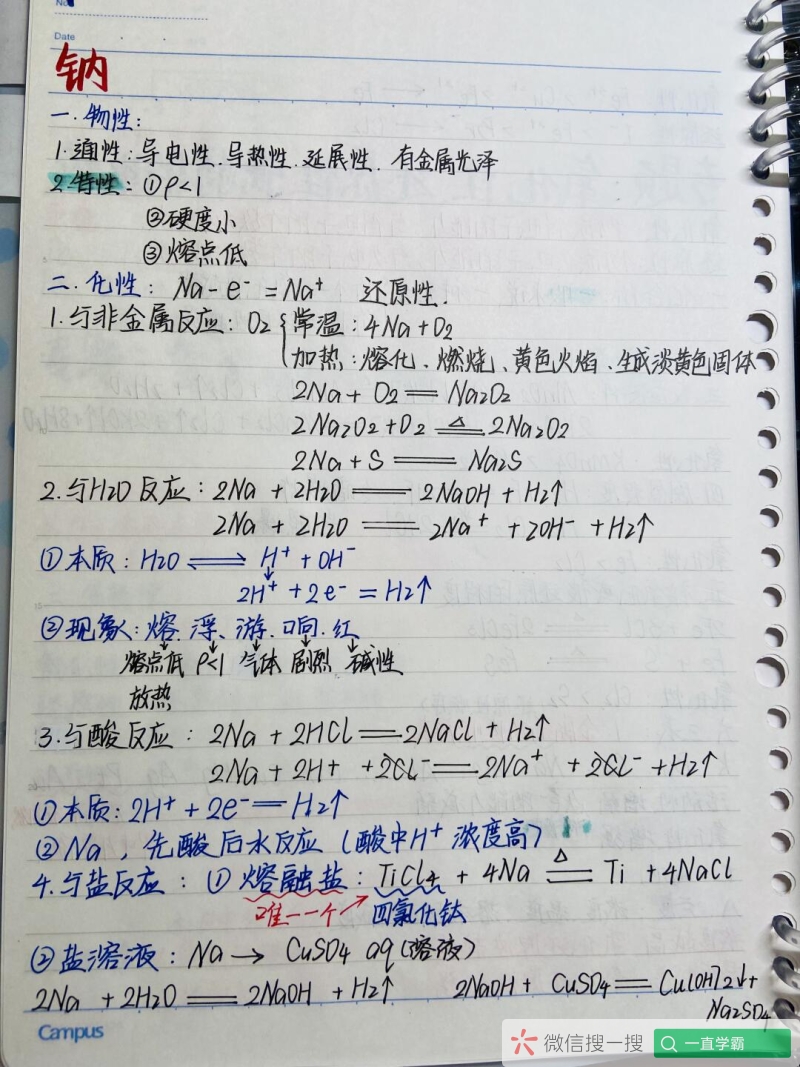 No
Date
钠
一.物性:
1.通性:导电性.导热性.延展性.有金属光泽
2.特性:①ρ<1
②硬度小
③熔点低
二.化性: Na-e⁻=Na⁺ 还原性.
1.与非金属反应: O2 { 常温:4Na+O2
加热:熔化、燃烧、黄色火焰、生成淡黄色固体
2Na+O2══Na2O2
2Na2O2+O2 ══△ 2Na2O2
2Na+S══Na2S
2.与H2O反应:2Na+2H2O══2NaOH+H2↑
2Na+2H2O══2Na⁺+2OH⁻+H2↑
①本质:H2O⇌H⁺+OH⁻
↓
2H⁺+2e⁻=H2↑
②现象:熔.浮、游.响.红
↓ ↓ ↓ ↓ ↓
熔点低 ρ<1 气体 剧烈 碱性
放热
3.与酸反应:2Na+2HCl══2NaCl+H2↑
2Na+2H⁺+2Cl⁻══2Na⁺+2Cl⁻+H2↑
①本质:2H⁺+2e⁻══H2↑
②Na,先酸后水反应(酸中H⁺浓度高)
4.与盐反应:①熔融盐:TiCl4+4Na ══△ Ti+4NaCl
唯一一个→ 四氯化钛
②盐溶液:Na→CuSO4 aq(溶液)
2Na+2H2O══2NaOH+H2↑ 2NaOH+CuSO4══Cu(OH)2↓+
Na2SO4
Campus
微信搜一搜
一直学霸